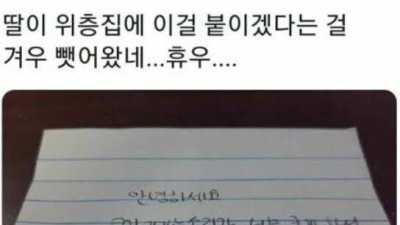 딸이 위층집에 이걸 붙이겠다는 걸
겨우 뺏어왔네...휴우....
안녕하세요